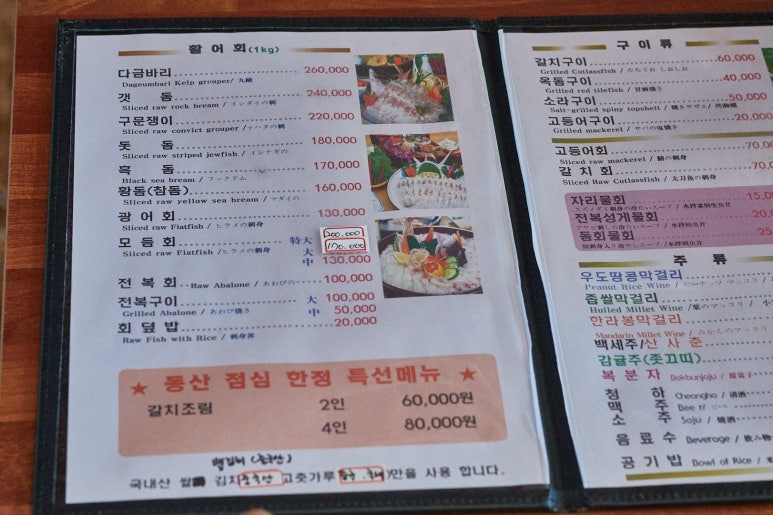 활 어 회(1kg)
다금바리 260,000
Dageumbari Kelp grouper/ 九絵
갯 돔 240,000
Sliced raw rock bream / イシダイの刺
구문쟁이 220,000
Sliced raw convict grouper/マハタの刺
돗 돔 180,000
Sliced raw striped jewfish / イシナギの
흑 돔 170,000
Black sea bream / フックドム
황돔(참돔) 160,000
Sliced raw yellow sea bream / マダイの
광 어 회 130,000
Sliced raw Flatfish/ ヒラメの刺身
모 듬 회 特大 200.000
Sliced raw Flatfish/ヒラメの刺身 大 170.000
中 130,000
전 복 회 Raw Abalone / あわびの 100,000
전복구이 大 100,000
Grilled Abalone / あわび焼き 中 50,000
회 덮 밥 20,000
Raw Fish with Rice / 刺身丼
★ 동산 점심 한정 특선메뉴 ★
갈치조림 2인 60,000원
4인 80,000원
국내산 쌀 김치 고춧가루 만을 사용 합니다.
구 이 류
갈치구이 60,000
Grilled Cutlassfish / たちうお しおしお
옥돔구이 40,000
Grilled red tilefish / 甘鯛焼き
소라구이 50,000
Salt-grilled spiny topshell / 焼きサザエ
고등어구이 20,000
Grilled mackerel / サバの塩焼き
고등어회 70,0
Sliced raw mackerel / 鯖の刺身
갈 치 회 70,
Sliced Raw Cutlassfish / 太刀魚の刺身
자리물회 15,0
전복성게물회 20,0
동회물회 25
주 류
우도땅콩막걸리
Peanut Rice Wine / ピーナッツ マッコリ
좁쌀막걸리
Hulled Millet Wine /粟のマッコリ
한라봉막걸리
Mandarin Millet Wine / みかんのマッコリ
백세주/산 사 춘
감귤주(좃끄띠)
복 분 자 Bokbunjaju / 覆盆子
청 하 Cheongha / 清酒
맥 주 Beer/ ビール
소 주 Soju / 焼酒
음 료 수 Beverage / 飲み物
공 기 밥 Bowl of Rice /